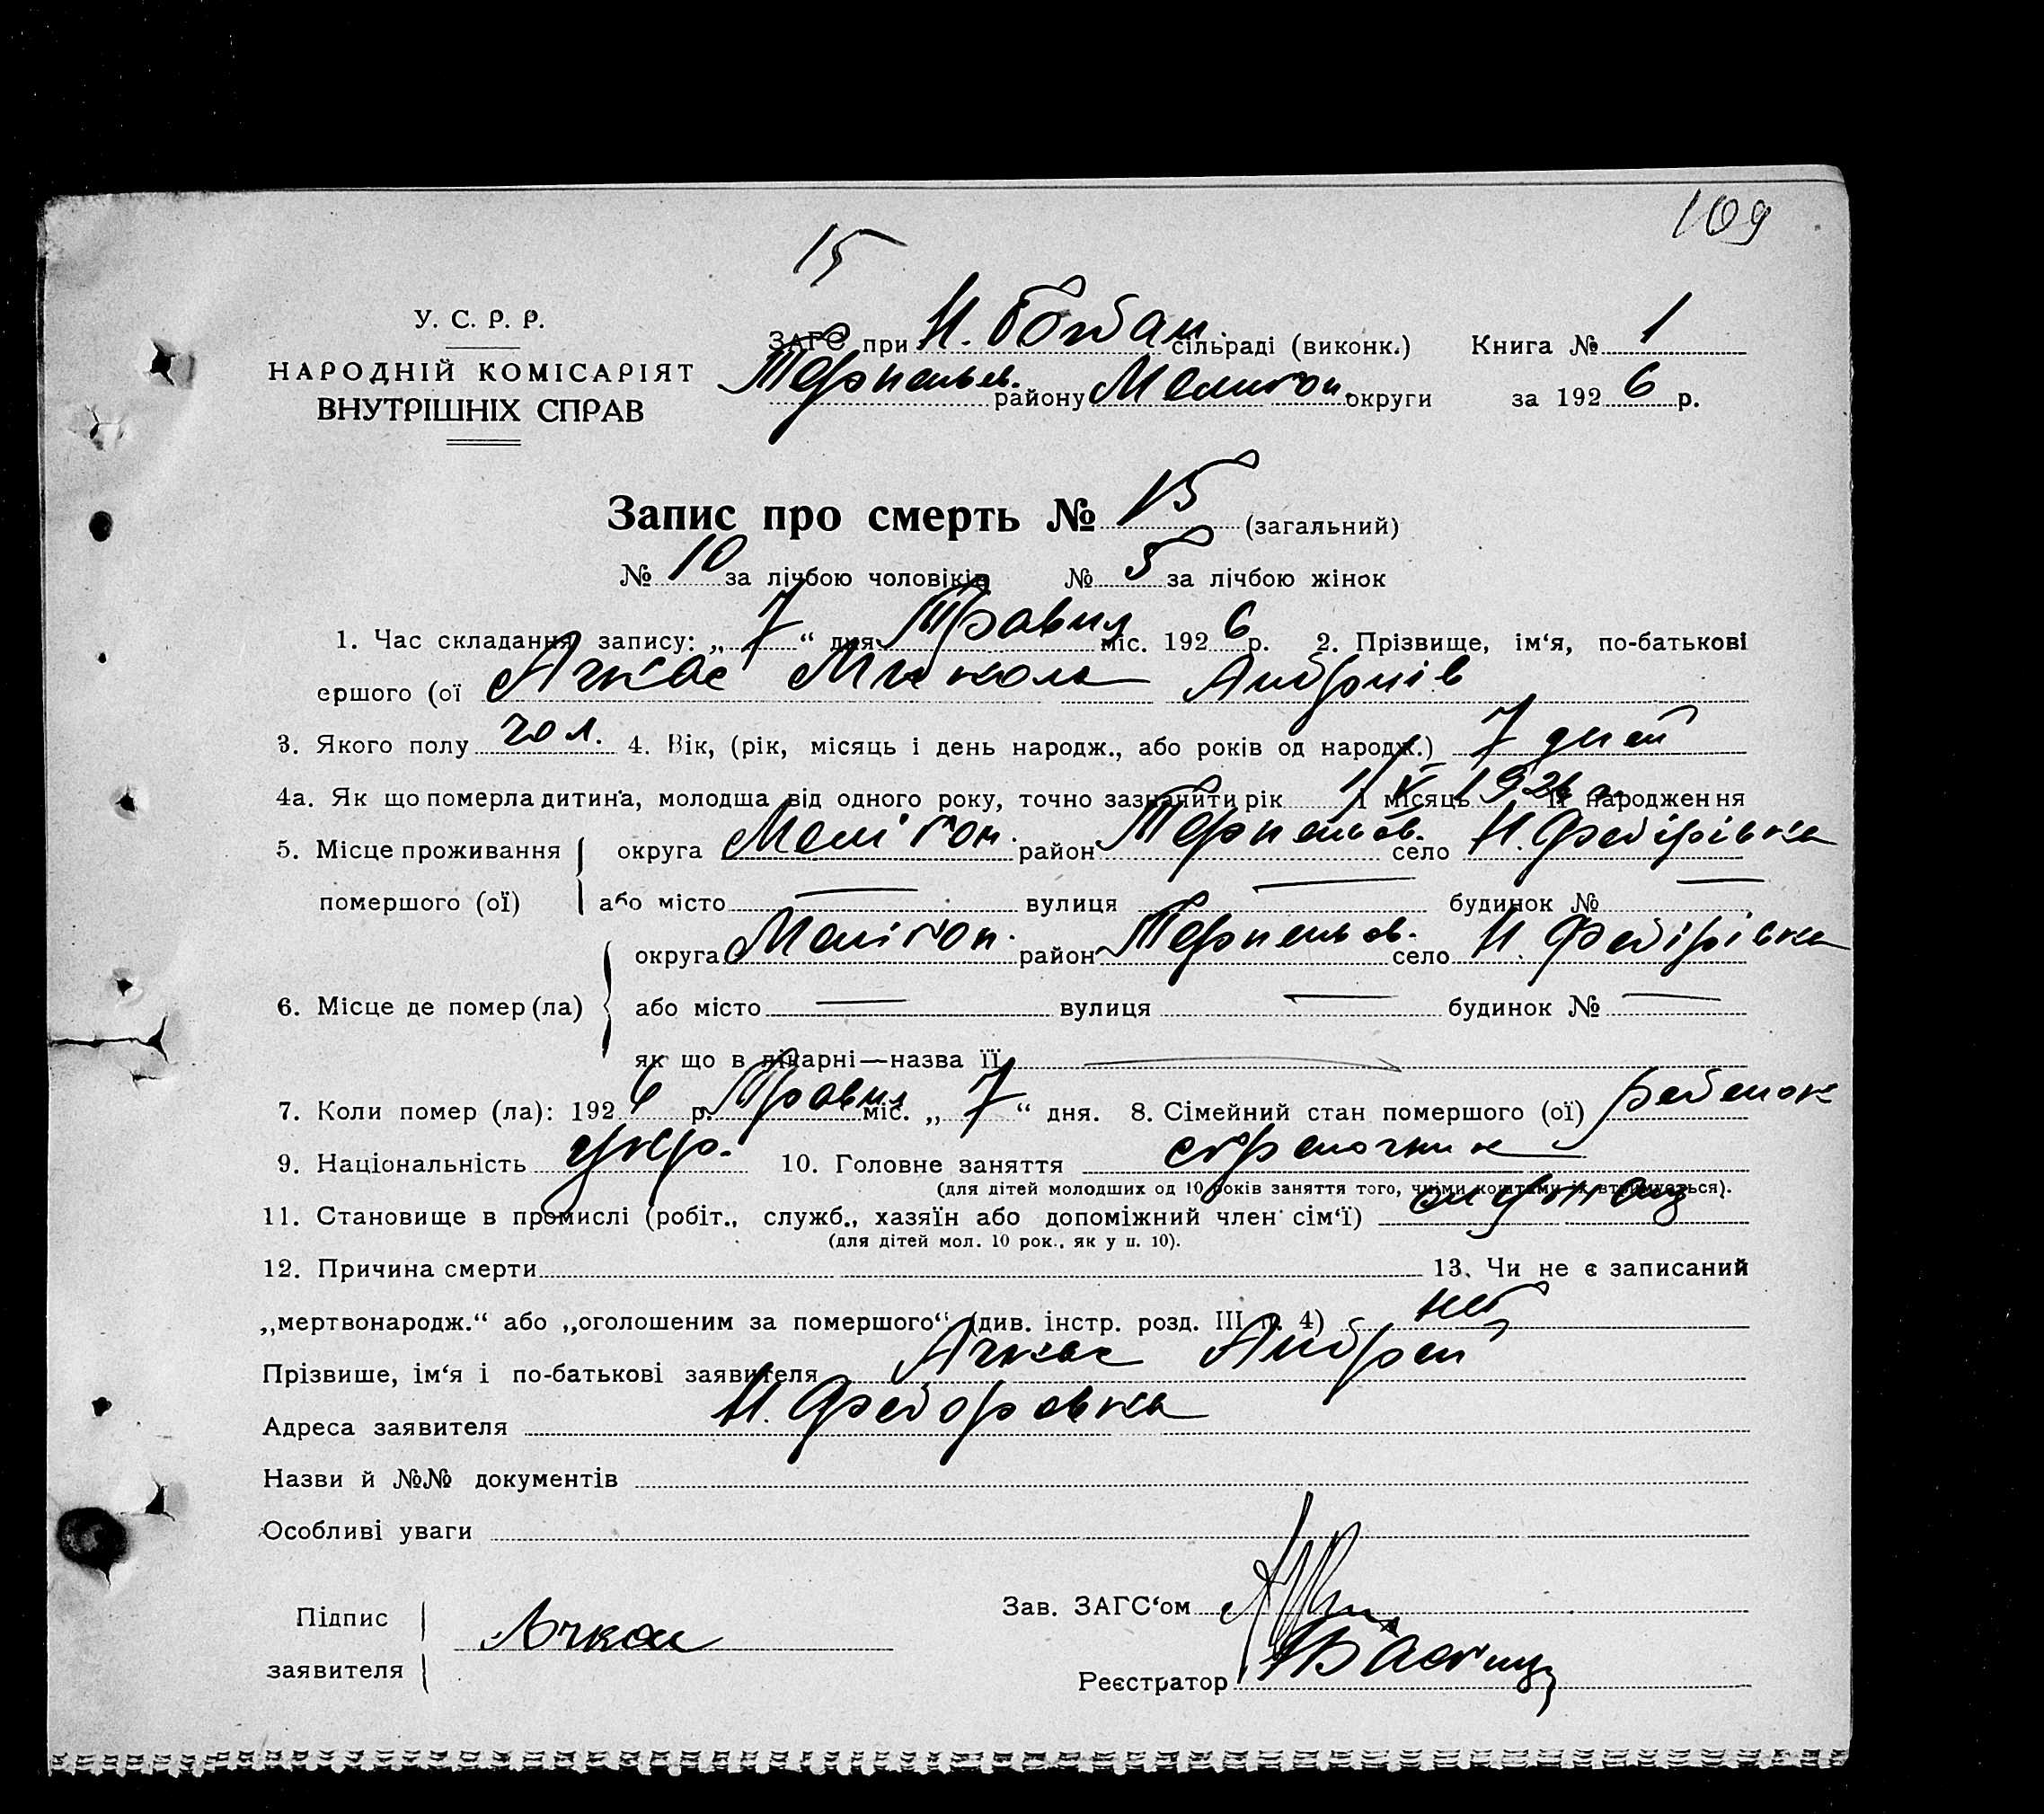 109
15
У. С. Р. Р.
НАРОДНІЙ КОМІСАРІЯТ
ВНУТРІШНІХ СПРАВ
ЗАГС при Н. Богдан. сільраді (виконк.) Книга № 1
Терпеньев. району Мелитоп. округи за 1926 р.
Запис про смерть № 15 (загальний)
№ 10 за лічбою чоловіків № 5 за лічбою жінок
1. Час складання запису: „7“ дня Травня міс. 1926 р. 2. Прізвище, ім‘я, по-батькові
ершого (ої Ачкас Микола Андріїв
3. Якого полу чол. 4. Вік, (рік, місяць і день народж., або років од народж.) 7 дней
4а. Як що померла дитина, молодша від одного року, точно зазначити рік 1/V 1926 і місяць її народження
5. Місце проживання округа Мелітоп. район Терпеньев. село Н. Федірівка
помершого (ої) або місто — вулиця — будинок № —
округа Мелітоп. район Терпеньев. село Н. Федірівка
6. Місце де помер (ла) або місто — вулиця — будинок № —
як що в лікарні—назва її —
7. Коли помер (ла): 1926 р. Травня міс. „7“ дня. 8. Сімейний стан помершого (ої) ребенок
9. Національність укр. 10. Головне заняття
(для дітей молодших од 10 років заняття того, чиїми коштами їх втримується).
11. Становище в промислі (робіт., служб., хазяїн або допоміжний член сім‘ї)
(для дітей мол. 10 рок., як у п. 10).
12. Причина смерти 13. Чи не є записаний
„мертвонародж.“ або „оголошеним за помершого“ (див. інстр. розд. III п. 4) нет
Прізвише, ім‘я і по-батькові заявителя Ачкас Андрей
Адреса заявителя Н. Федоровка
Назви й №№ документів
Особливі уваги
Підпис
заявителя Ачкас
Зав. ЗАГС‘ом
Реєстратор